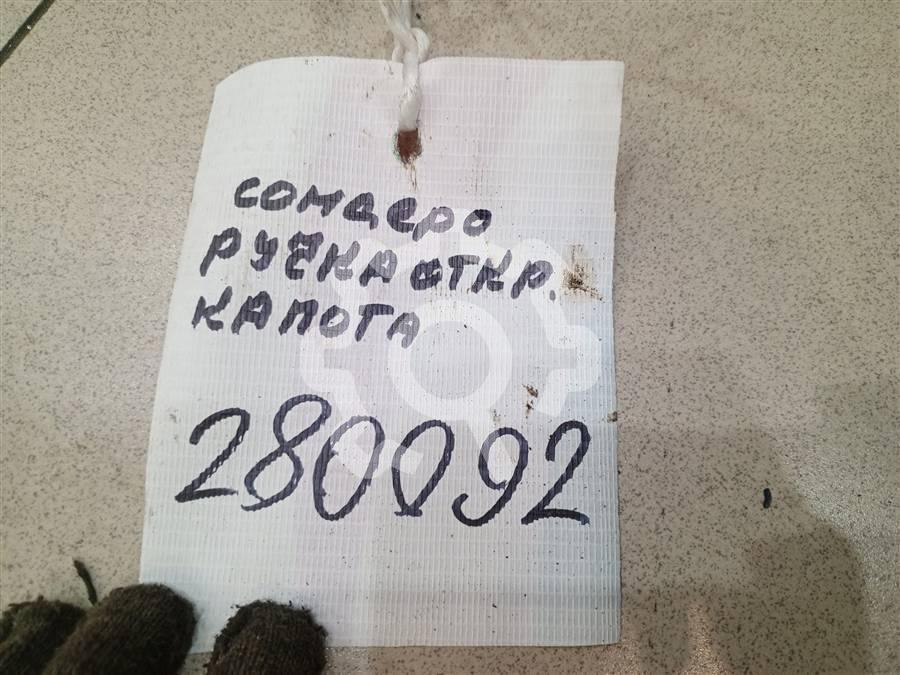 сомдеро
ручка откр.
капота
280092